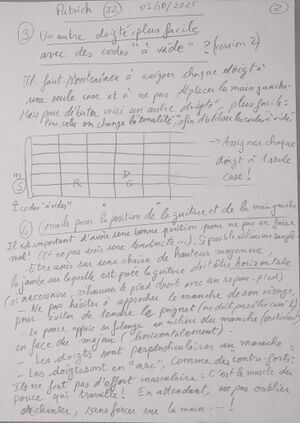 Patrick (J2) 03/10/2025 (2)
(3) Un autre doigté, plus facile
avec des cordes "à vide" ? (version 2)
Il faut s'entraîner à assigner chaque doigt à
une seule case et à ne pas déplacer la main gauche.
Mais pour débuter voici un autre doigté, plus facile:
Pour cela on change la tonalité, afin d'utiliser les cordes "à vide"
→ Assigner chaque
doigt à 1 seule
case !
m
(S) R D
G
↑ cordes "à vides"
(4) Conseils pour la position de la guitare et de la main gauche
Il est important d'avoir une bonne position pour ne pas se faire
mal ! (Et ne pas avoir une tendinite...). Si possible utiliser une sangle
- Etre assis sur une chaise de hauteur moyenne
la jambe sur laquelle est posée la guitare doit être horizontale
(si nécessaire, réhausser le pied droit avec un repose-pied)
- Ne pas hésiter à approcher le manche de son visage,
pour éviter de tendre le poignet
- Le pouce appuie sa phalange au milieu du manche (verticalement)
en face du majeur (horizontalement)
- Les doigts sont perpendiculaires au manche:
- Les doigts sont en "arc", comme des "contre-forts"
Ils ne font pas d'effort musculaire: c'est le muscle du
pouce qui travaille ! En attendant, ne pas oublier
de chanter, sans forcer sur la main...!